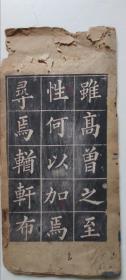 雖髙曽之至
性何以加焉
尋焉輶軒布